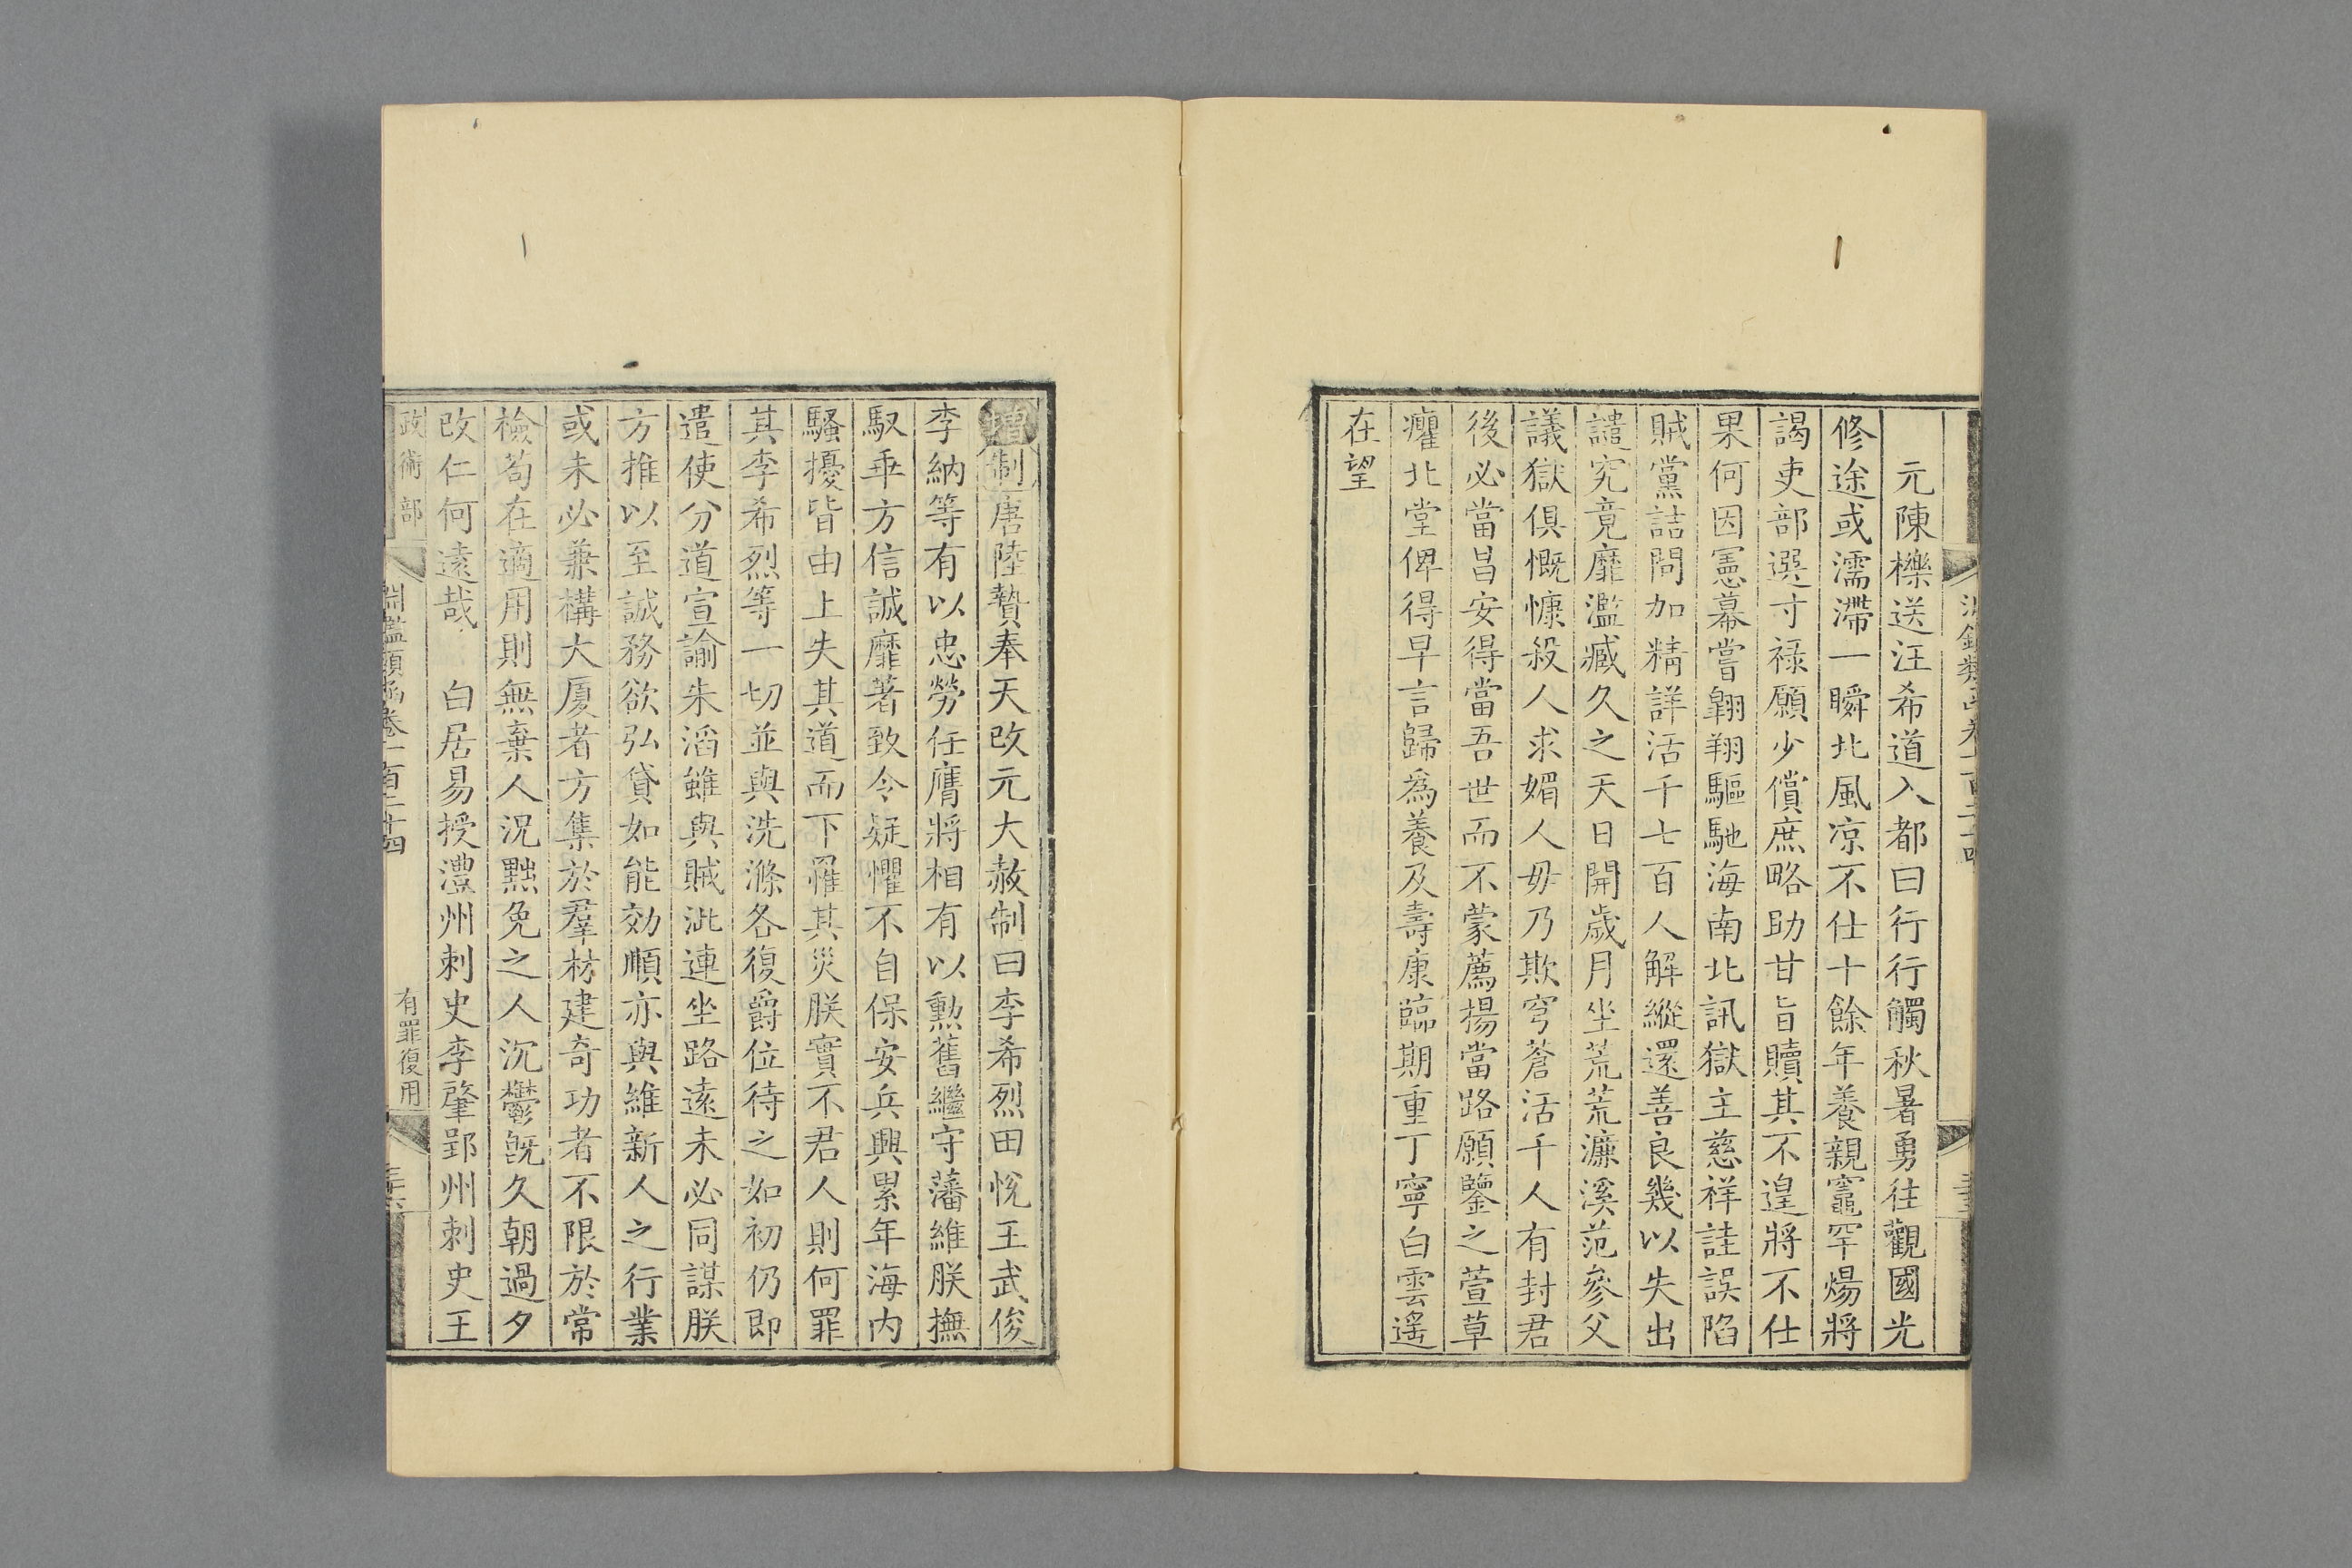 元陳櫟送汪希道入都曰行行觸秋暑勇往觀國光
修途或濡滯一瞬北風凉不仕十餘年養親竈罕煬將
謁吏部選寸禄願少償庶略助甘旨贖其不遑將不仕
果何因憲幕嘗翱翔驅馳海南北訊獄主慈祥詿誤陷
賊黨詰問加精詳活千七百人解縱還善良幾以失出
譴究竟靡濫臧久之天日開歲月坐荒荒濂溪范參父
議獄俱慨慷殺人求媚人毋乃欺穹蒼活千人有封君
後必當昌安得當吾世而不蒙薦揚當路願鑒之萱草
癯北堂俾得早言歸為養及壽康臨期重丁寧白雲遙
在望
增制唐陸贄奉天改元大赦制曰李希烈田悅王武俊
李納等有以忠勞任膺將相有以勲舊繼守藩維朕撫
馭乖方信誠靡著致令疑懼不自保安兵興累年海内
騷擾皆由上失其道而下罹其災朕實不君人則何罪
其李希烈等一切並與洗滌各復爵位待之如初仍即
遣使分道宣諭朱滔雖與賊泚連坐路遠未必同謀朕
方推以至誠務欲弘貸如能効順亦與維新人之行業
或未必兼構大厦者方集於羣材建奇功者不限於常
檢苟在適用則無棄人況黜免之人沉鬱旣久朝過夕
改仁何遠哉 白居易授澧州刺史李肇郢州刺史王
政術部
淵鑑類函卷一百二十四
有罪復用